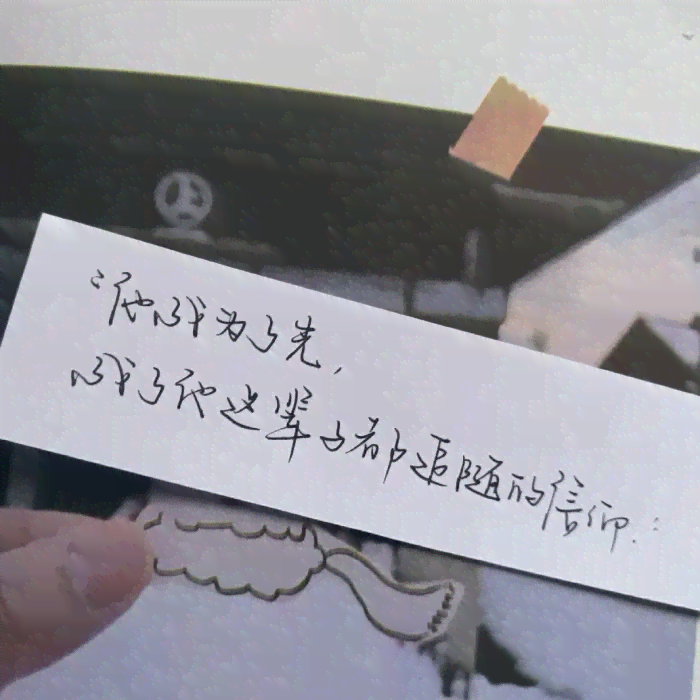 “他成为了光，
成了他这辈子都追随的信仰.”
上